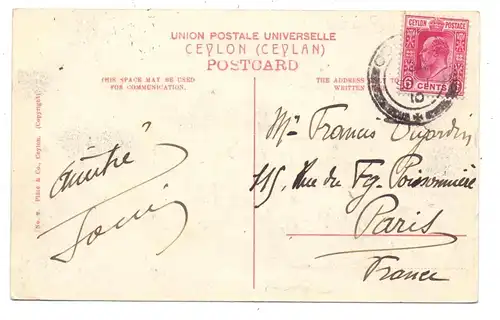 UNION POSTALE UNIVERSELLE
CEYLON (CEYLAN)
POSTCARD
THIS SPACE MAY BE USED
FOR COMMUNICATION.
THE ADDRESS
WRITTEN
CEYLON POSTAGE
6 CENTS
10
No. 8. Plâté & Co., Ceylon. (Copyright)
Mr Francis Dujardin
115, Rue du Fg. Poissonnière
Paris
France
Amitié